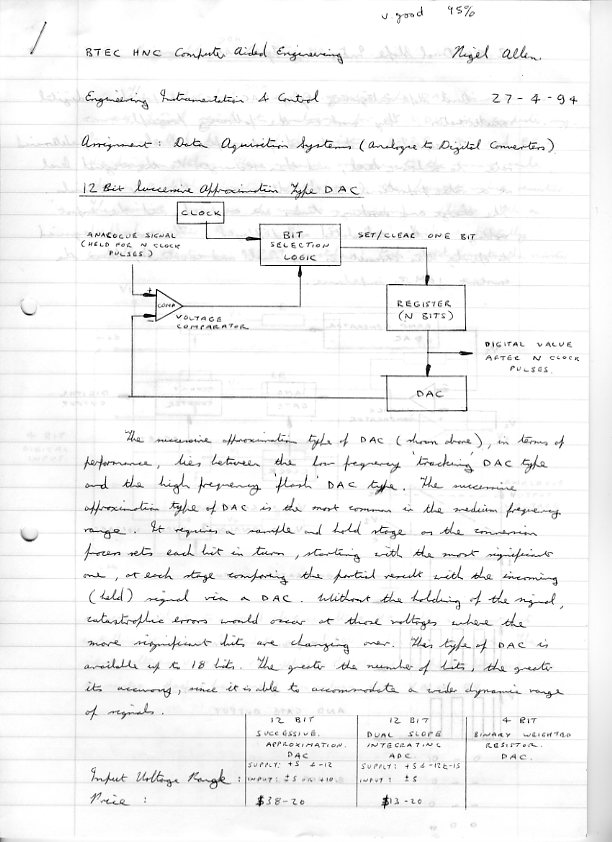 v good 95%
1
BTEC HNC Computer Aided Engineering Nigel Allen.
Engineering Instrumentation & Control 27-4-94
Assignment: Data Aquisition Systems (Analogue to Digital Converters)
12 Bit Successive Approximation Type DAC
CLOCK
ANALOGUE SIGNAL
(HELD FOR N CLOCK
PULSES)
BIT
SELECTION
LOGIC
SET/CLEAR ONE BIT
+
COMP
-
VOLTAGE
COMPARATOR
REGISTER
(N BITS)
DIGITAL VALUE
AFTER N CLOCK
PULSES.
DAC
The successive approximation type of DAC (shown above), in terms of
performance, lies between the low frequency 'tracking' DAC type
and the high frequency 'flash' DAC type. The successive
approximation type of DAC is the most common in the medium frequency
range. It requires a sample and hold stage as the conversion
process sets each bit in turn, starting with the most significant
one, at each stage comparing the partial result with the incoming
(held) signal via a DAC. Without the holding of the signal,
catastrophic errors would occur at those voltages where the
more significant bits are changing over. This type of DAC is
available up to 18 bits. The greater the number of bits, the greater
its accuracy, since it is able to accommodate a wider dynamic range
of signals.
12 BIT SUCCESSIVE. APPROXIMATION. DAC
12 BIT DUAL SLOPE INTEGRATING ADC.
4 BIT BINARY WEIGHTED RESISTOR. DAC.
SUPPLY: +5 & -12 SUPPLY: +5 & -12 & -15
Input Voltage Range: INPUT: ±5 +10 INPUT: ±5
Price: $38-20 $13-20